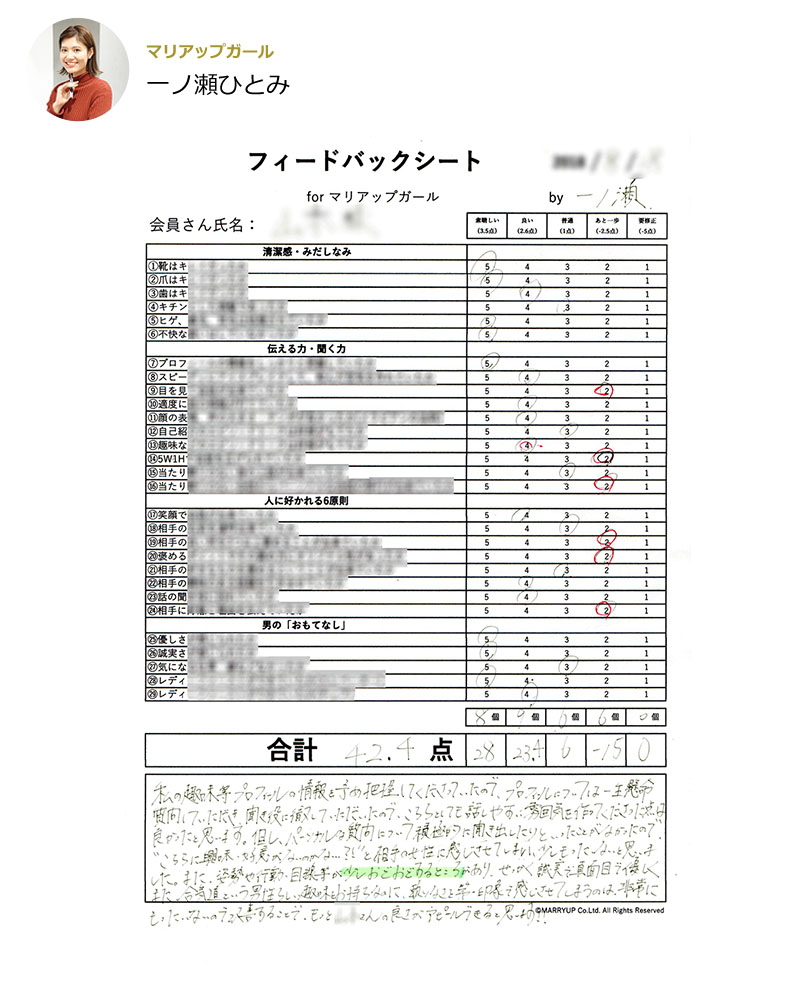 マリアップガール
一ノ瀬ひとみ
フィードバックシート
for マリアップガール
by 一ノ瀬
会員さん氏名：
素晴しい 良い 普通 あと一歩 要修正
(3.5点) (2.6点) (1点) (-2.5点) (-5点)
清潔感・みだしなみ
①靴はキ 5 4 3 2 1
②爪はキ 5 4 3 2 1
③歯はキ 5 4 3 2 1
④キチン 5 4 3 2 1
⑤ヒゲ、 5 4 3 2 1
⑥不快な 5 4 3 2 1
伝える力・聞く力
⑦プロフ 5 4 3 2 1
⑧スピー 5 4 3 2 1
⑨目を見 5 4 3 2 1
⑩適度に 5 4 3 2 1
⑪顔の表 5 4 3 2 1
⑫自己紹 5 4 3 2 1
⑬趣味な 5 4 3 2 1
⑭5W1H 5 4 3 2 1
⑮当たり 5 4 3 2 1
⑯当たり 5 4 3 2 1
人に好かれる6原則
⑰笑顔で 5 4 3 2 1
⑱相手の 5 4 3 2 1
⑲相手の 5 4 3 2 1
⑳褒める 5 4 3 2 1
㉑相手の 5 4 3 2 1
㉒相手の 5 4 3 2 1
㉓話の聞 5 4 3 2 1
㉔相手に 5 4 3 2 1
男の「おもてなし」
㉕優しさ 5 4 3 2 1
㉖誠実さ 5 4 3 2 1
㉗気にな 5 4 3 2 1
㉘レディ 5 4 3 2 1
㉙レディ 5 4 3 2 1
8個 9個 6個 6個 0個
合計 42.4 点 28 23.4 6 -15 0
私の趣味等プロフィールの情報を予め把握してくださっていたので、プロフィールについては一生懸命
質問していただき、聞き役に徹していただいたので、こちらとしても話しやすい雰囲気を作ってくださった点は
良かったと思います。但し、パーソナルな質問について積極的に聞き出したりといったことがなかったので、
"こちらに興味・好意がないのかな…?"と相手の女性に感じさせてしまい、少しもったいないと思いま
した。また、姿勢や行動・目線等が少しおどおどするところがあり、せっかく誠実で真面目で優しく
また、合気道という男性らしい趣味をお持ちなのに、頼りなさを第一印象で感じさせてしまうのは、非常に
もったいないので改善することで、もっと さんの良さがアピールできると思います!!
©MARRYUP Co.Ltd. All Rights Reserved